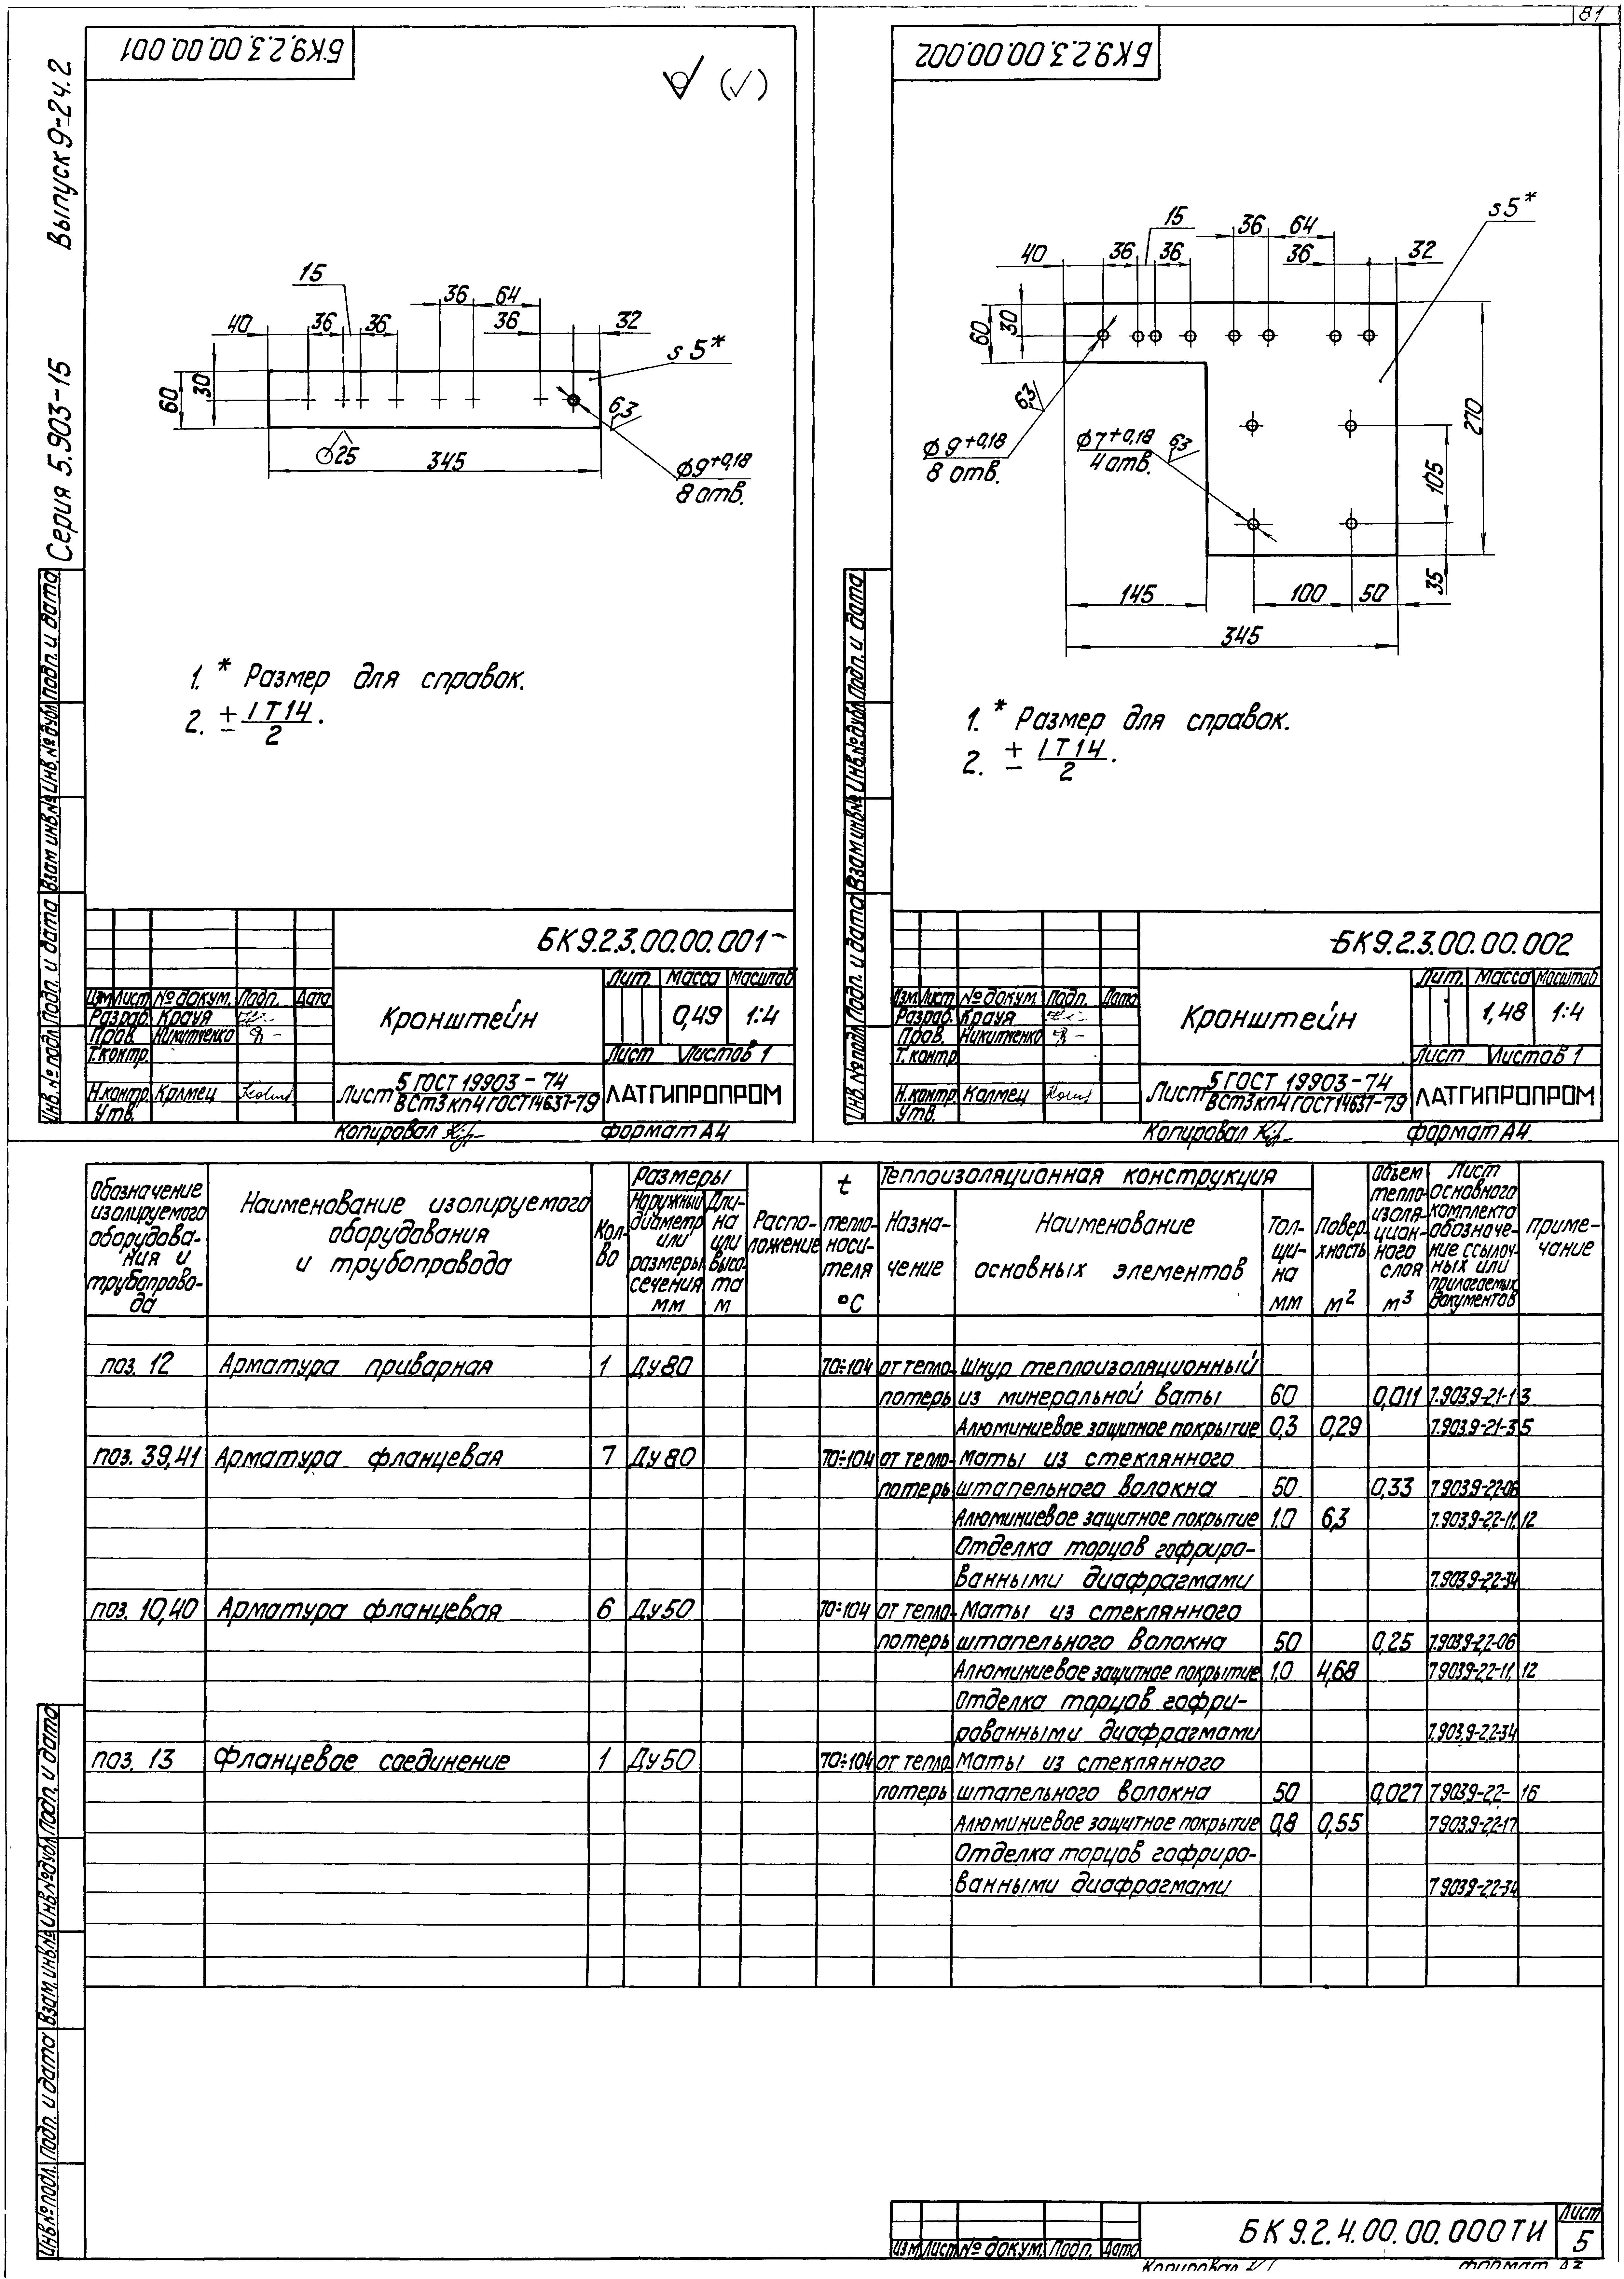 81
Серия 5.903-15 Выпуск 9-2 ч.2
БК9.2.3.00.00.001
(√)
15
36 64
40 36 36 36 32
s 5*
60 30
6,3
25
345
⌀9+0,18
8 отв.
1. * Размер для справок.
2. ± IT14/2.
Инв. № подл. Подп. и дата Взам инв. № Инв. № дубл. Подп. и дата
БК9.2.3.00.00.001
Кронштейн
Лит. Масса Масштаб
0,49 1:4
Лист Листов 1
Изм Лист № докум. Подп. Дата
Разраб. Крауя
Пров. Никитченко
Т.контр.
Н.контр. Калмец
Утв.
Лист 5 ГОСТ 19903-74 / ВСт3кп4 ГОСТ 14637-79
ЛАТГИПРОПРОМ
Копировал
формат А4
БК9.2.3.00.00.002
15
36 64
40 36 36 36 32
s5*
60 30
6,3
⌀9+0,18
8 отв.
⌀7+0,18
4 отв.
6,3
270
105
35
145 100 50
345
1. * Размер для справок.
2. ± IT14/2.
Инв. № подл. Подп. и дата Взам инв. № Инв. № дубл. Подп. и дата
БК9.2.3.00.00.002
Кронштейн
Лит. Масса Масштаб
1,48 1:4
Лист Листов 1
Изм Лист № докум. Подп. Дата
Разраб. Крауя
Пров. Никитченко
Т.контр.
Н.контр. Калмец
Утв.
Лист 5 ГОСТ 19903-74 / ВСт3кп4 ГОСТ 14637-79
ЛАТГИПРОПРОМ
Копировал
формат А4
Обозначение изолируемого оборудова-ния и трубопрово-да
Наименование изолируемого оборудования и трубопровода
Кол-во
Размеры
Наружный диаметр или размеры сечения мм
Дли-на или высо-та м
Распо-ложение
t тепло-носи-теля °С
Теплоизоляционная конструкция
Назна-чение
Наименование основных элементов
Тол-щи-на мм
Повер-хность м²
Объем тепло-изоля-цион-ного слоя м³
Лист основного комплекта обозначе-ние ссылоч-ных или прилагаемых документов
Приме-чание
поз. 12 Арматура приварная 1 Ду80 70÷104 от тепло- Шнур теплоизоляционный
потерь из минеральной ваты 60 0,011 7.903.9-2.1-13
Алюминиевое защитное покрытие 0,3 0,29 7.903.9-2.1-35
поз. 39,41 Арматура фланцевая 7 Ду80 70÷104 от тепло- Маты из стеклянного
потерь штапельного волокна 50 0,33 7.903.9-2.2-06
Алюминиевое защитное покрытие 1.0 6,3 7.903.9-2.2-11,12
Отделка торцов гофриро-
ванными диафрагмами 7.903.9-2.2-34
поз. 10,40 Арматура фланцевая 6 Ду50 70÷104 от тепло- Маты из стеклянного
потерь штапельного волокна 50 0,25 7.903.9-2.2-06
Алюминиевое защитное покрытие 1.0 4,68 7.903.9-2.2-11,12
Отделка торцов гофри-
рованными диафрагмами 7.903.9-2.2-34
поз. 13 Фланцевое соединение 1 Ду50 70÷104 от тепло- Маты из стеклянного
потерь штапельного волокна 50 0,027 7.903.9-2.2-16
Алюминиевое защитное покрытие 0,8 0,55 7.903.9-2.2-17
Отделка торцов гофриро-
ванными диафрагмами 7.903.9-2.2-34
Инв. № подл. Подп. и дата Взам. инв. № Инв. № дубл. Подп. и дата
Изм Лист № докум. Подп. Дата
БК9.2.4.00.00.000ТИ
Лист
5
Копировал
Формат А3